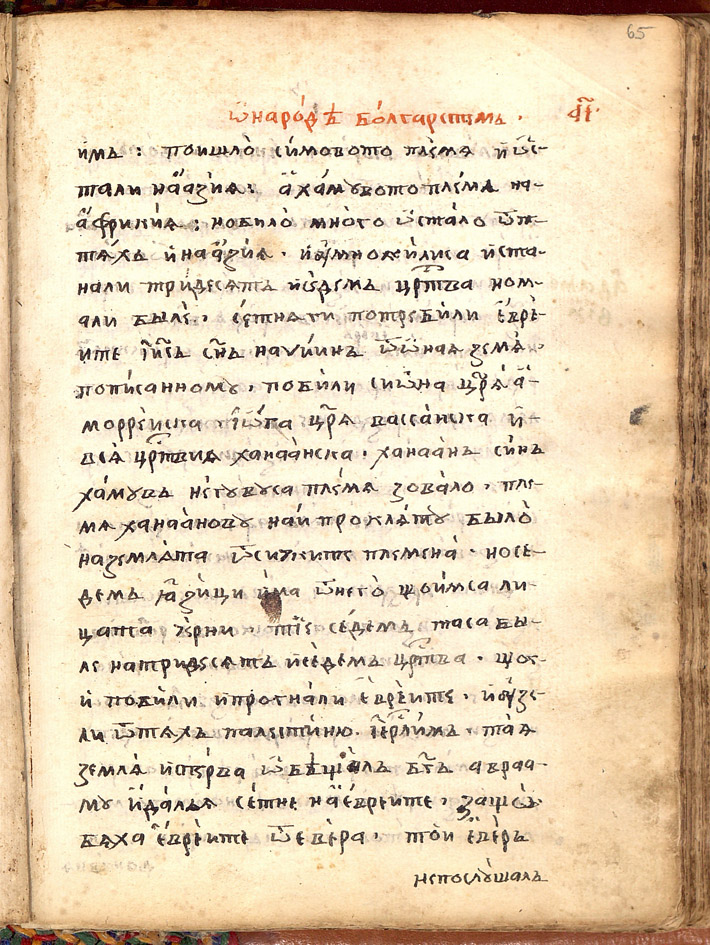 65
ѿ народѣ болгарстѣмъ. а҃і.
имъ: поишло симовото племя и ѡс-
тали на азия: а хамувото племя на-
африкия: но било много ѡстало ѿ т-
тяхъ и на азия. и умножилиса и ста-
нали тридесять и седемъ црс҃тва ном-
али были. сетне ги потребили евре-
ите і҃исъ с҃нъ навиинъ ѿ оная земя.
пописанному. побили сиѡна ц҃ря а-
морреиска. і ѡга ц҃ря вассанска и
вся црс҃твия ханаанска. ханаанъ синъ
хамувъ неговуса племя зовало. пле-
мя ханаанову наи проклято было
на землята ѿ сичките племена. но се-
демъ язици има ѿ него що имса ли-
цата черни. тіе седемъ таса бы-
ле на тридесять и седемъ црс҃тва. що г-
и побили и прогнали евреите. и узе-
ли ѿ тяхъ палестиню. і҃ерлимъ. тая
земля исперва ѡбѣщалъ б҃гъ авраа-
му и далъ я сетне на евреите. защо
бяха евреите ѿ евера. той еверъ
непослушалъ